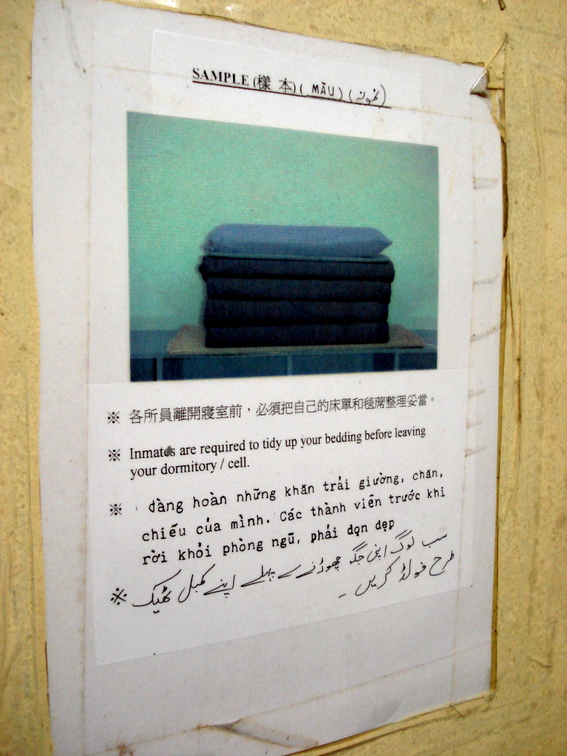 SAMPLE (樣 本) ( MẪU ) (نمونہ)
※ 各所員離開寢室前，必須把自己的床單和毯蓆整理妥當。
※ Inmates are required to tidy up your bedding before leaving
your dormitory / cell.
※ đàng hoàn những khăn trải giường, chăn,
chiếu của mình. Các thành viên trước khi
rời khỏi phòng ngũ, phải dọn dẹp
※ سب لوگ اپنی جگہ چھوڑنے سے پہلے اپنے کمبل ٹھیک
طرح فولڈ کریں ۔